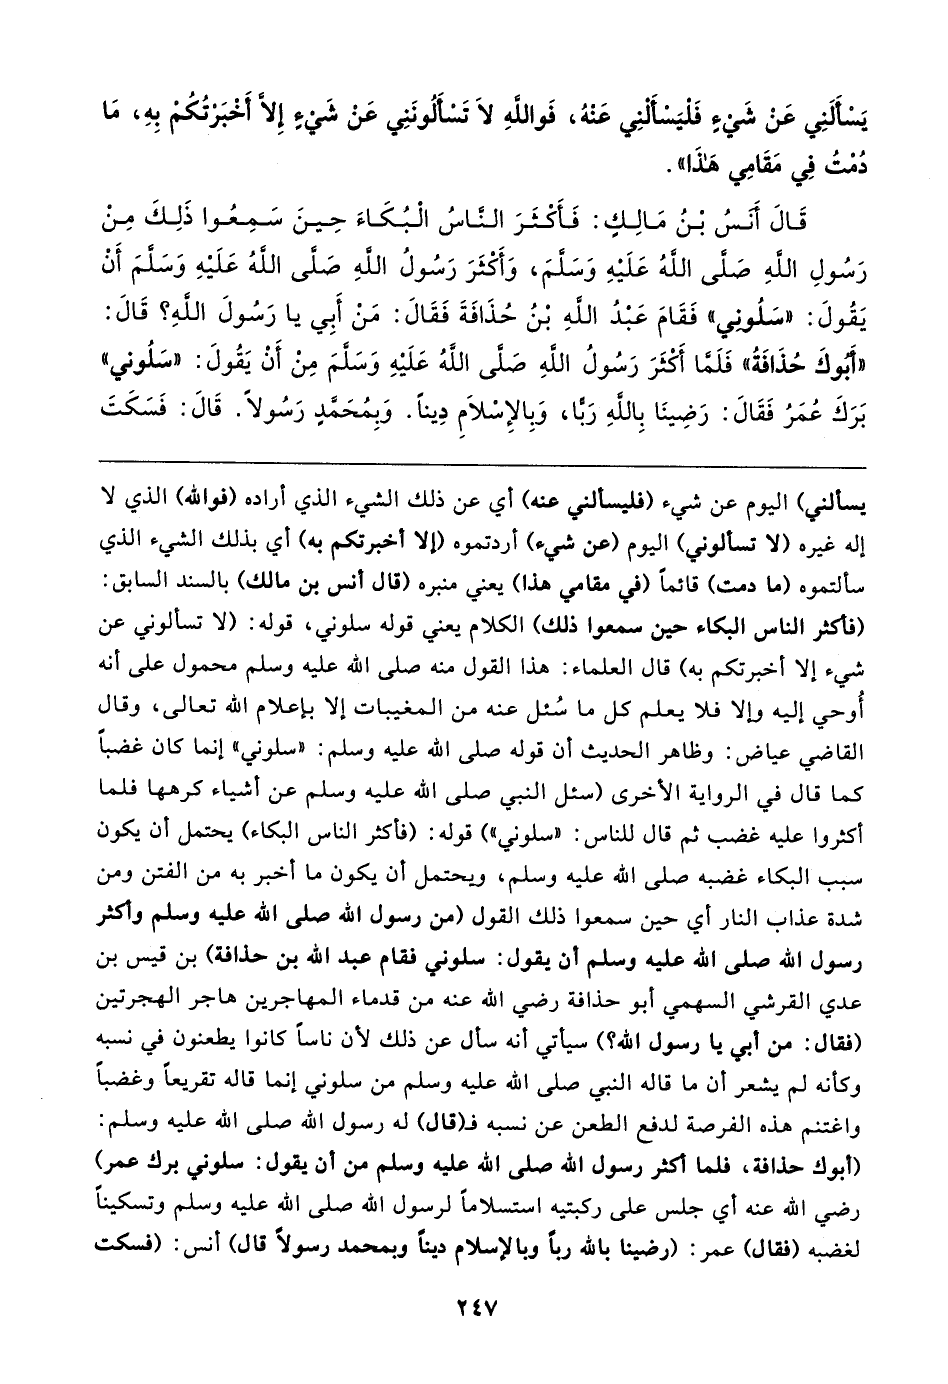 يَسْأَلَنِي عَنْ شَيْءٍ فَلْيَسْأَلْنِي عَنْهُ، فَوَاللَّهِ لاَ تَسْأَلُونَنِي عَنْ شَيْءٍ إِلاَّ أَخْبَرْتُكُمْ بِهِ، مَا
دُمْتُ فِي مَقَامِي هَذَا».
قَالَ أَنَسُ بْنُ مَالِكٍ: فَأَكْثَرَ النَّاسُ الْبُكَاءَ حِينَ سَمِعُوا ذَلِكَ مِنْ
رَسُولِ اللَّهِ صَلَّى اللَّهُ عَلَيْهِ وَسَلَّمَ، وَأَكْثَرَ رَسُولُ اللَّهِ صَلَّى اللَّهُ عَلَيْهِ وَسَلَّمَ أَنْ
يَقُولَ: «سَلُونِي» فَقَامَ عَبْدُ اللَّهِ بْنُ حُذَافَةَ فَقَالَ: مَنْ أَبِي يا رَسُولَ اللَّهِ؟ قَالَ:
«أَبُوكَ حُذَافَةُ» فَلَمَّا أَكْثَرَ رَسُولُ اللَّهِ صَلَّى اللَّهُ عَلَيْهِ وَسَلَّمَ مِنْ أَنْ يَقُولَ: «سَلُونِي»
بَرَكَ عُمَرُ فَقَالَ: رَضِينَا بِاللَّهِ رَبًّا، وَبِالإِسْلاَمِ دِيناً. وَبِمُحَمَّدٍ رَسُولاً. قَالَ: فَسَكَتَ
يسألني) اليوم عن شيء (فليسألني عنه) أي عن ذلك الشيء الذي أراده (فوالله) الذي لا
إله غيره (لا تسألوني) اليوم (عن شيء) أردتموه (إلا أخبرتكم به) أي بذلك الشيء الذي
سألتموه (ما دمت) قائماً (في مقامي هذا) يعني منبره (قال أنس بن مالك) بالسند السابق:
(فأكثر الناس البكاء حين سمعوا ذلك) الكلام يعني قوله سلوني، قوله: (لا تسألوني عن
شيء إلا أخبرتكم به) قال العلماء: هذا القول منه صلى الله عليه وسلم محمول على أنه
أُوحي إليه وإلا فلا يعلم كل ما سُئل عنه من المغيبات إلا بإعلام الله تعالى، وقال
القاضي عياض: وظاهر الحديث أن قوله صلى الله عليه وسلم: «سلوني» إنما كان غضباً
كما قال في الرواية الأخرى (سئل النبي صلى الله عليه وسلم عن أشياء كرهها فلما
أكثروا عليه غضب ثم قال للناس: «سلوني») قوله: (فأكثر الناس البكاء) يحتمل أن يكون
سبب البكاء غضبه صلى الله عليه وسلم، ويحتمل أن يكون ما أخبر به من الفتن ومن
شدة عذاب النار أي حين سمعوا ذلك القول (من رسول الله صلى الله عليه وسلم وأكثر
رسول الله صلى الله عليه وسلم أن يقول: سلوني فقام عبد الله بن حذافة) بن قيس بن
عدي القرشي السهمي أبو حذافة رضي الله عنه من قدماء المهاجرين هاجر الهجرتين
(فقال: من أبي يا رسول الله؟) سيأتي أنه سأل عن ذلك لأن ناساً كانوا يطعنون في نسبه
وكأنه لم يشعر أن ما قاله النبي صلى الله عليه وسلم من سلوني إنما قاله تقريعاً وغضباً
واغتنم هذه الفرصة لدفع الطعن عن نسبه فـ(قال) له رسول الله صلى الله عليه وسلم:
(أبوك حذافة، فلما أكثر رسول الله صلى الله عليه وسلم من أن يقول: سلوني برك عمر)
رضي الله عنه أي جلس على ركبتيه استسلاماً لرسول الله صلى الله عليه وسلم وتسكيناً
لغضبه (فقال) عمر: (رضينا بالله رباً وبالإسلام ديناً وبمحمد رسولاً قال) أنس: (فسكت
٢٤٧